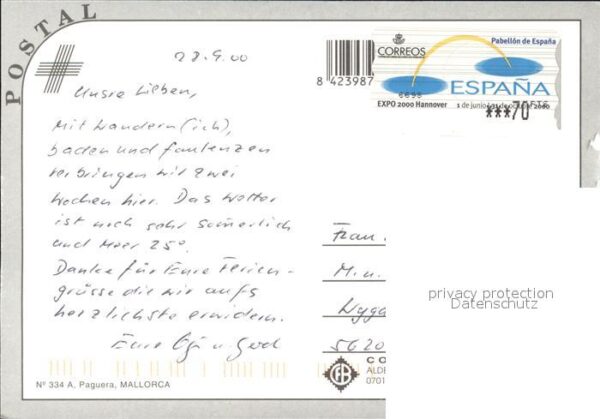 POSTAL
28.9.00
Unsre Lieben,
Mit wandern (ich),
baden und faulenzen
verbringen wir zwei
Wochen hier. Das Wetter
ist noch sehr sommerlich
und Meer 25°.
Danke für Eure Ferien-
grüsse die wir aufs
herzlichste erwidern.
Eure
Nº 334 A, Paguera, MALLORCA
8 423987
CORREOS
Pabellón de España
ESPAÑA
6698
EXPO 2000 Hannover 1 de junio / 31 de octubre 2000
***70 PTS
Frau
M. u.
Wyga
5620
privacy protection
Datenschutz
CO
ALDE
0701